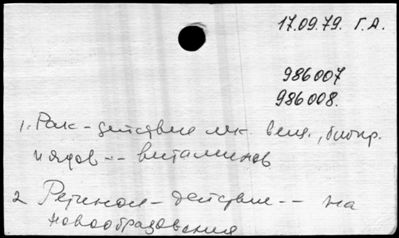 17.09.79. Г.А.
986007
986008.
1. Рак - действие лек. вещ., биопр.
и ядов -- витаминов
2 Ретинол - действие -- на
новообразования